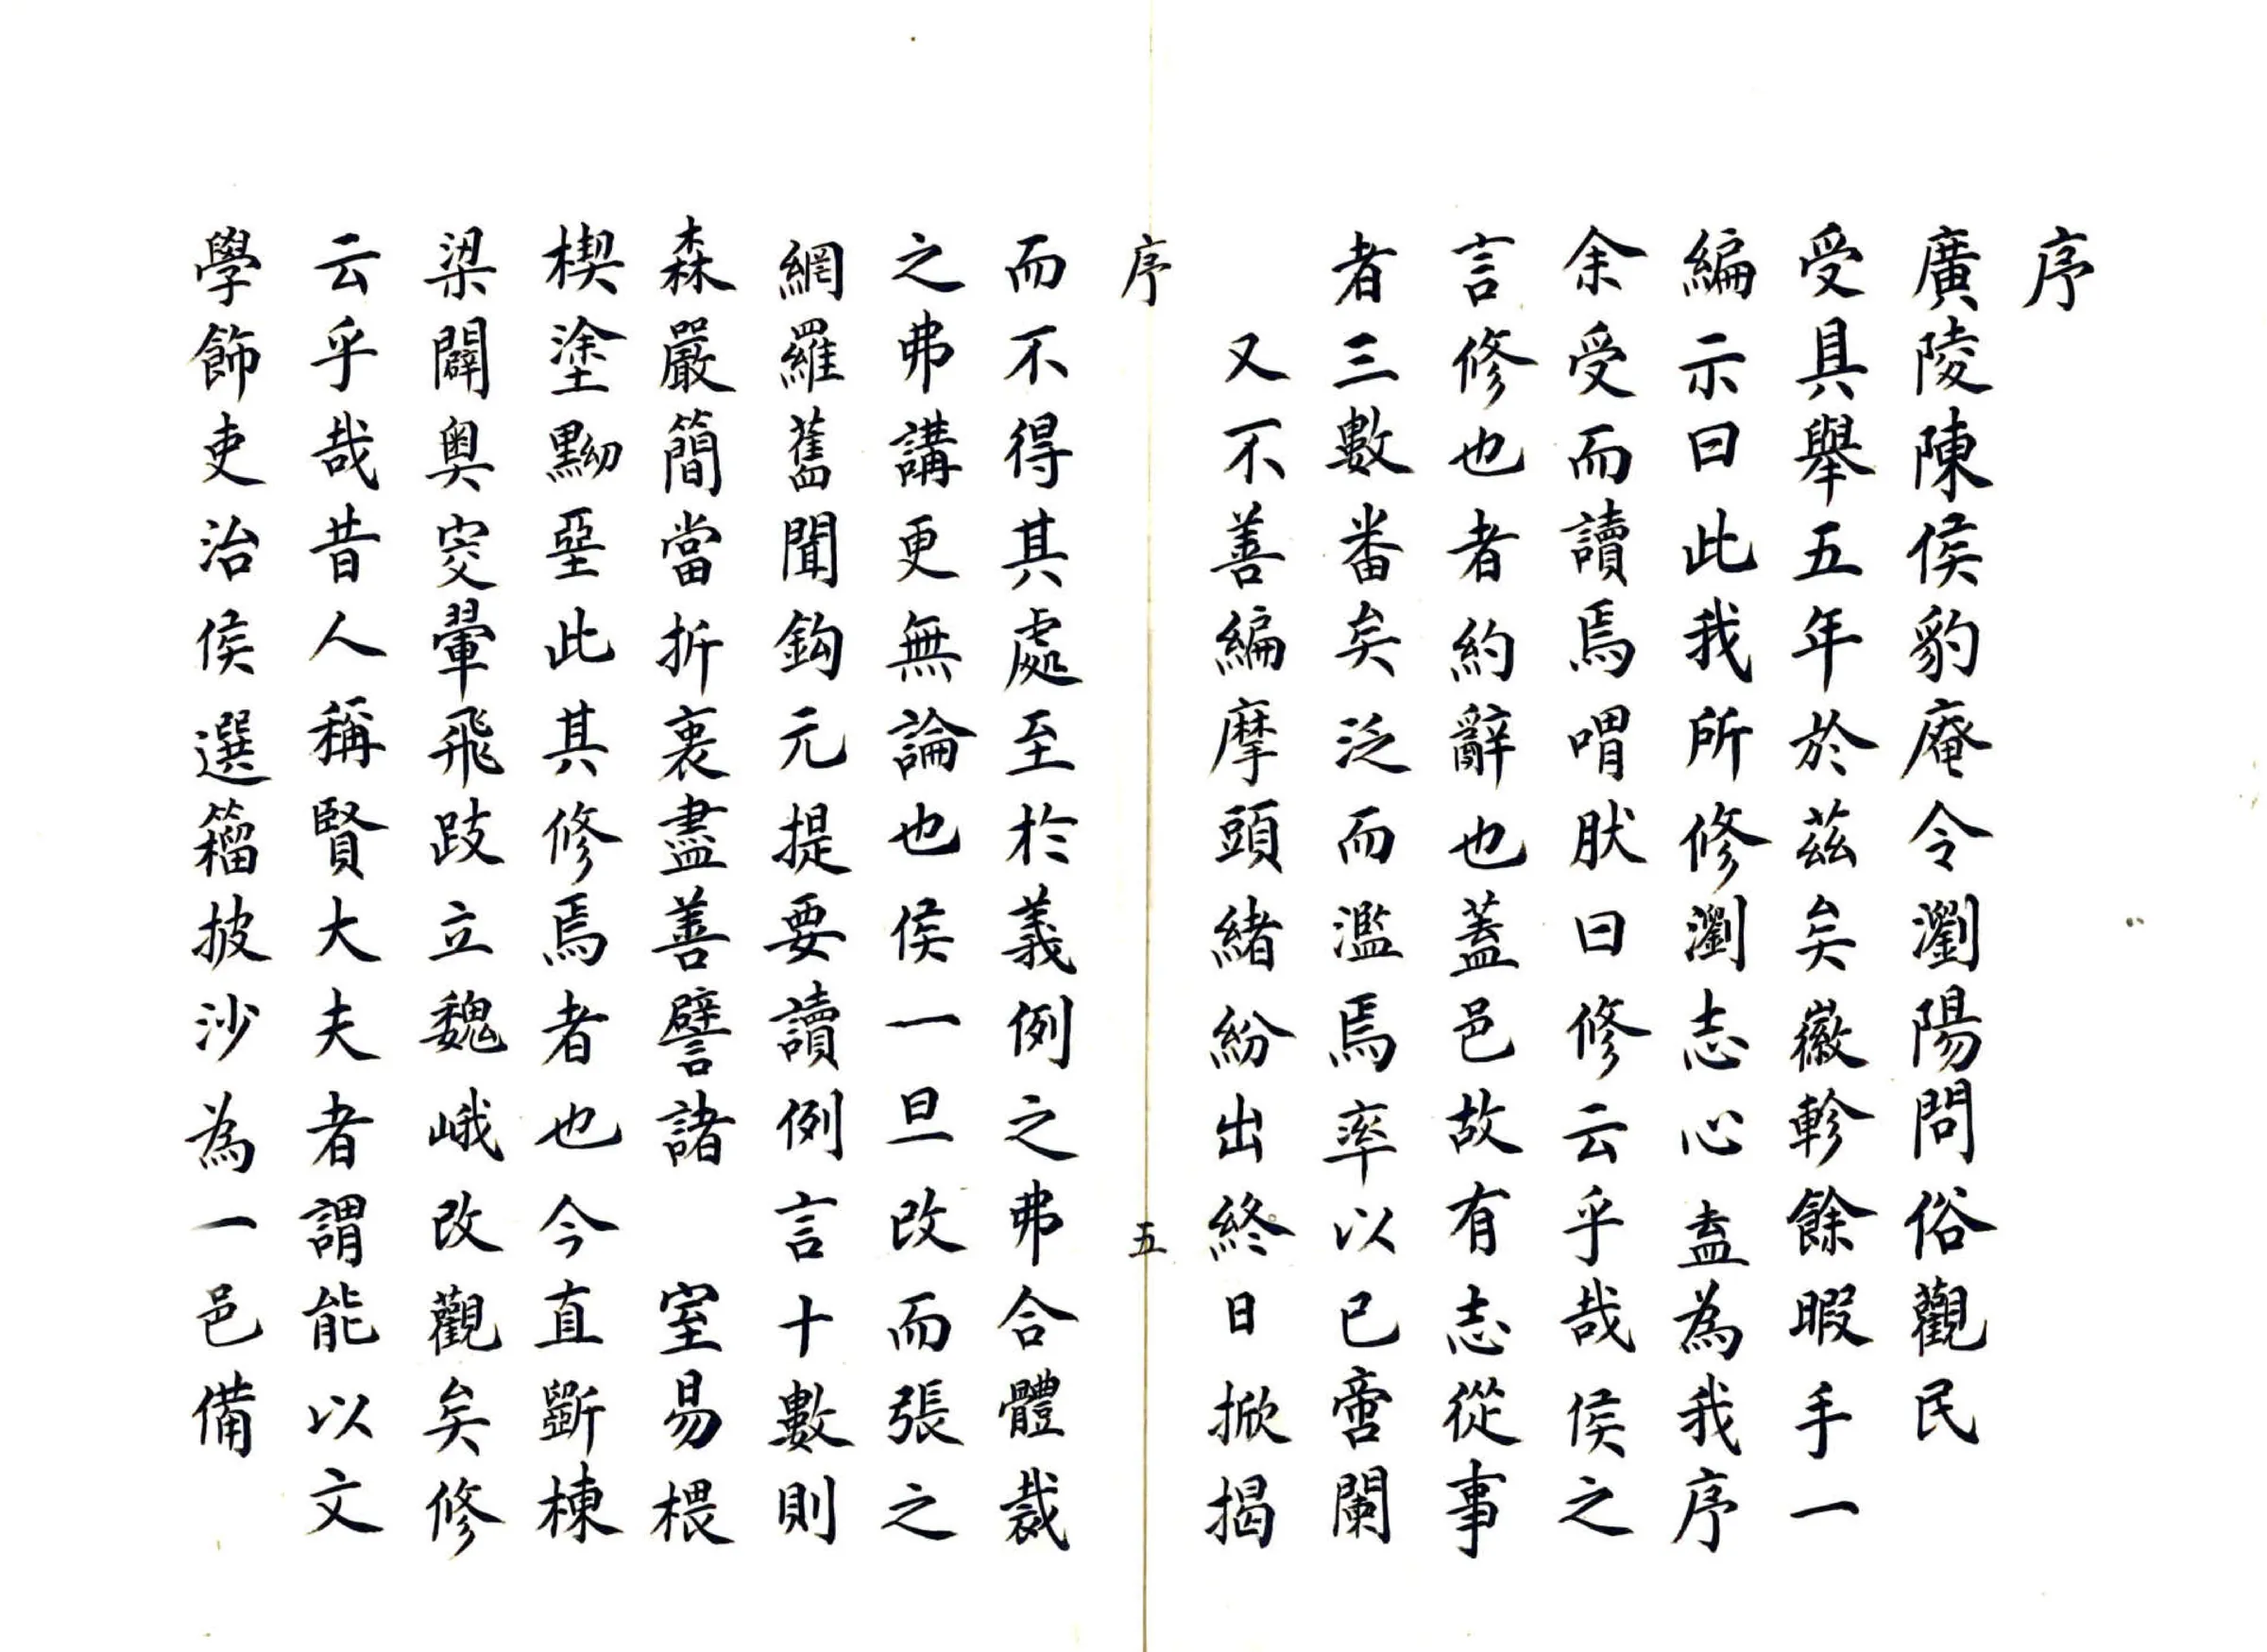 序
廣陵陳侯豹庵令瀏陽問俗觀民
受具舉五年於茲矣徽軫餘暇手一
編示曰此我所修瀏志心盍為我序
余受而讀焉喟肰曰修云乎哉侯之
言修也者約辭也蓋邑故有志從事
者三數番矣泛而濫焉率以已啻闌
又不善編摩頭緒紛出終日掀揭
序
五
而不得其處至於義例之弗合體裁
之弗講更無論也侯一旦改而張之
網羅舊聞鈎元提要讀例言十數則
森嚴簡當折衷盡善譬諸 室易椳
楔塗黝堊此其修焉者也今直斲棟
梁闢奧窔翬飛跂立巍峨改觀矣修
云乎哉昔人稱賢大夫者謂能以文
學飾吏治侯選籀披沙為一邑備